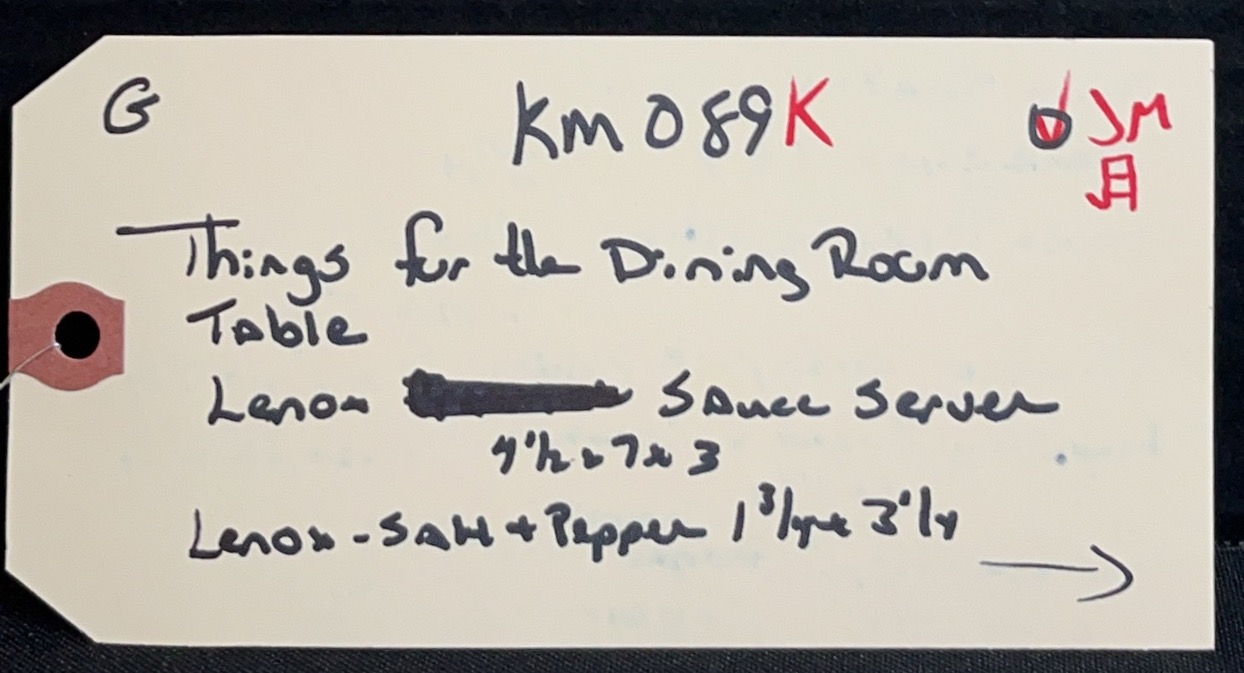 G KM089K JM
Things for the Dining Room
Table
Lenox Sauce Server
4 1/2 x 7 x 3
Lenox - Salt + Pepper 1 3/4 x 3 1/4 →